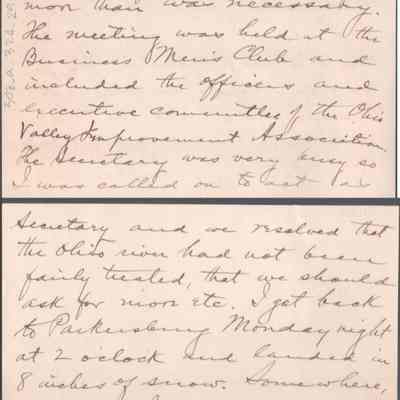 more than was necessary.
The meeting was held at the
Business Men's Club and
included the officers and
executive committee of the Ohio
Valley Improvement Association.
The Secretary was very busy so
I was called on to act as
Secretary and we resolved that
the Ohio river had not been
fairly treated, that we should
ask for more etc. I got back
to Parkersburg Monday night
at 2 o'clock and landed in
8 inches of snow. Somewhere,